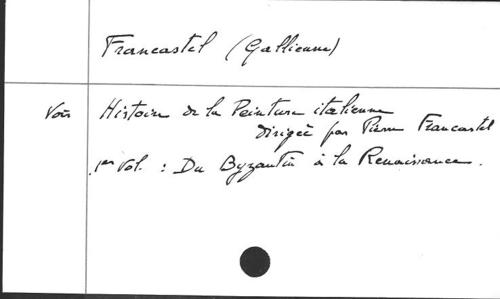 Francastel (Gallienne)
Voir Histoire de la Peinture italienne
dirigée par Pierre Francastel
1er Vol. : Du Byzantin à la Renaissance.